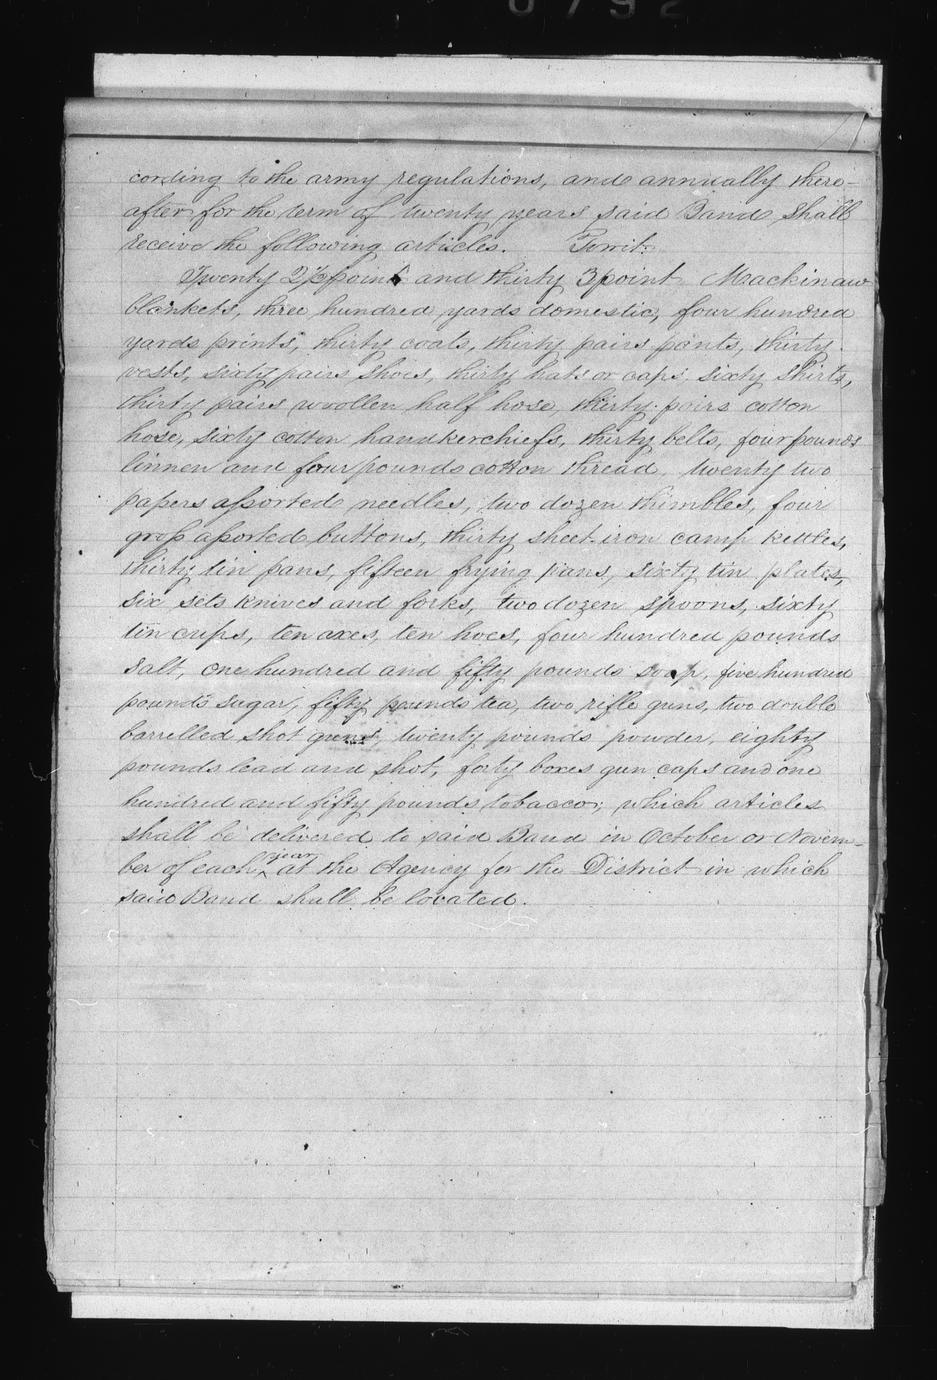 cording to the army regulations, and annually there-
after for the term of twenty years said Band shall
receive the following articles. Towit:
Twenty 2½ point and thirty 3 point Mackinaw
blankets, three hundred yards domestic, four hundred
yards prints, thirty coats, thirty pairs pants, thirty
vests, sixty pairs shoes, thirty hats or caps, sixty shirts,
thirty pairs woollen half hose, thirty pairs cotton
hose, sixty cotton handkerchiefs, thirty belts, four pounds
linnen and four pounds cotton thread, twenty two
papers assorted needles, two dozen thimbles, four
gross assorted buttons, thirty sheet iron camp kettles,
thirty tin pans, fifteen frying pans, sixty tin plates,
six sets knives and forks, two dozen spoons, sixty
tin cups, ten axes, ten hoes, four hundred pounds
salt, one hundred and fifty pounds soap, five hundred
pounds sugar, fifty pounds tea, two rifle guns, two double
barrelled shot guns, twenty pounds powder, eighty
pounds lead and shot, forty boxes gun caps and one
hundred and fifty pounds tobacco; which articles
shall be delivered to said Band in October or Novem-
ber of each year at the Agency for the District in which
said Band shall be located.